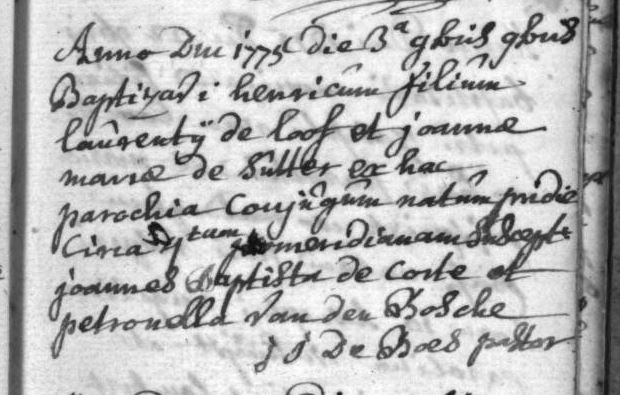 Anno Dni 1775 die 3a 9bris
Baptizavi henricûm filiûm
laûrentÿ de loof et joannæ
mariæ de Sûtter ex hac
parochia Conjûgûm natûm pridie
Circa 7tam meridianam suscept:
joannes Baptista de Corte et
petronella Van den Bossche
J J De Boes pastor